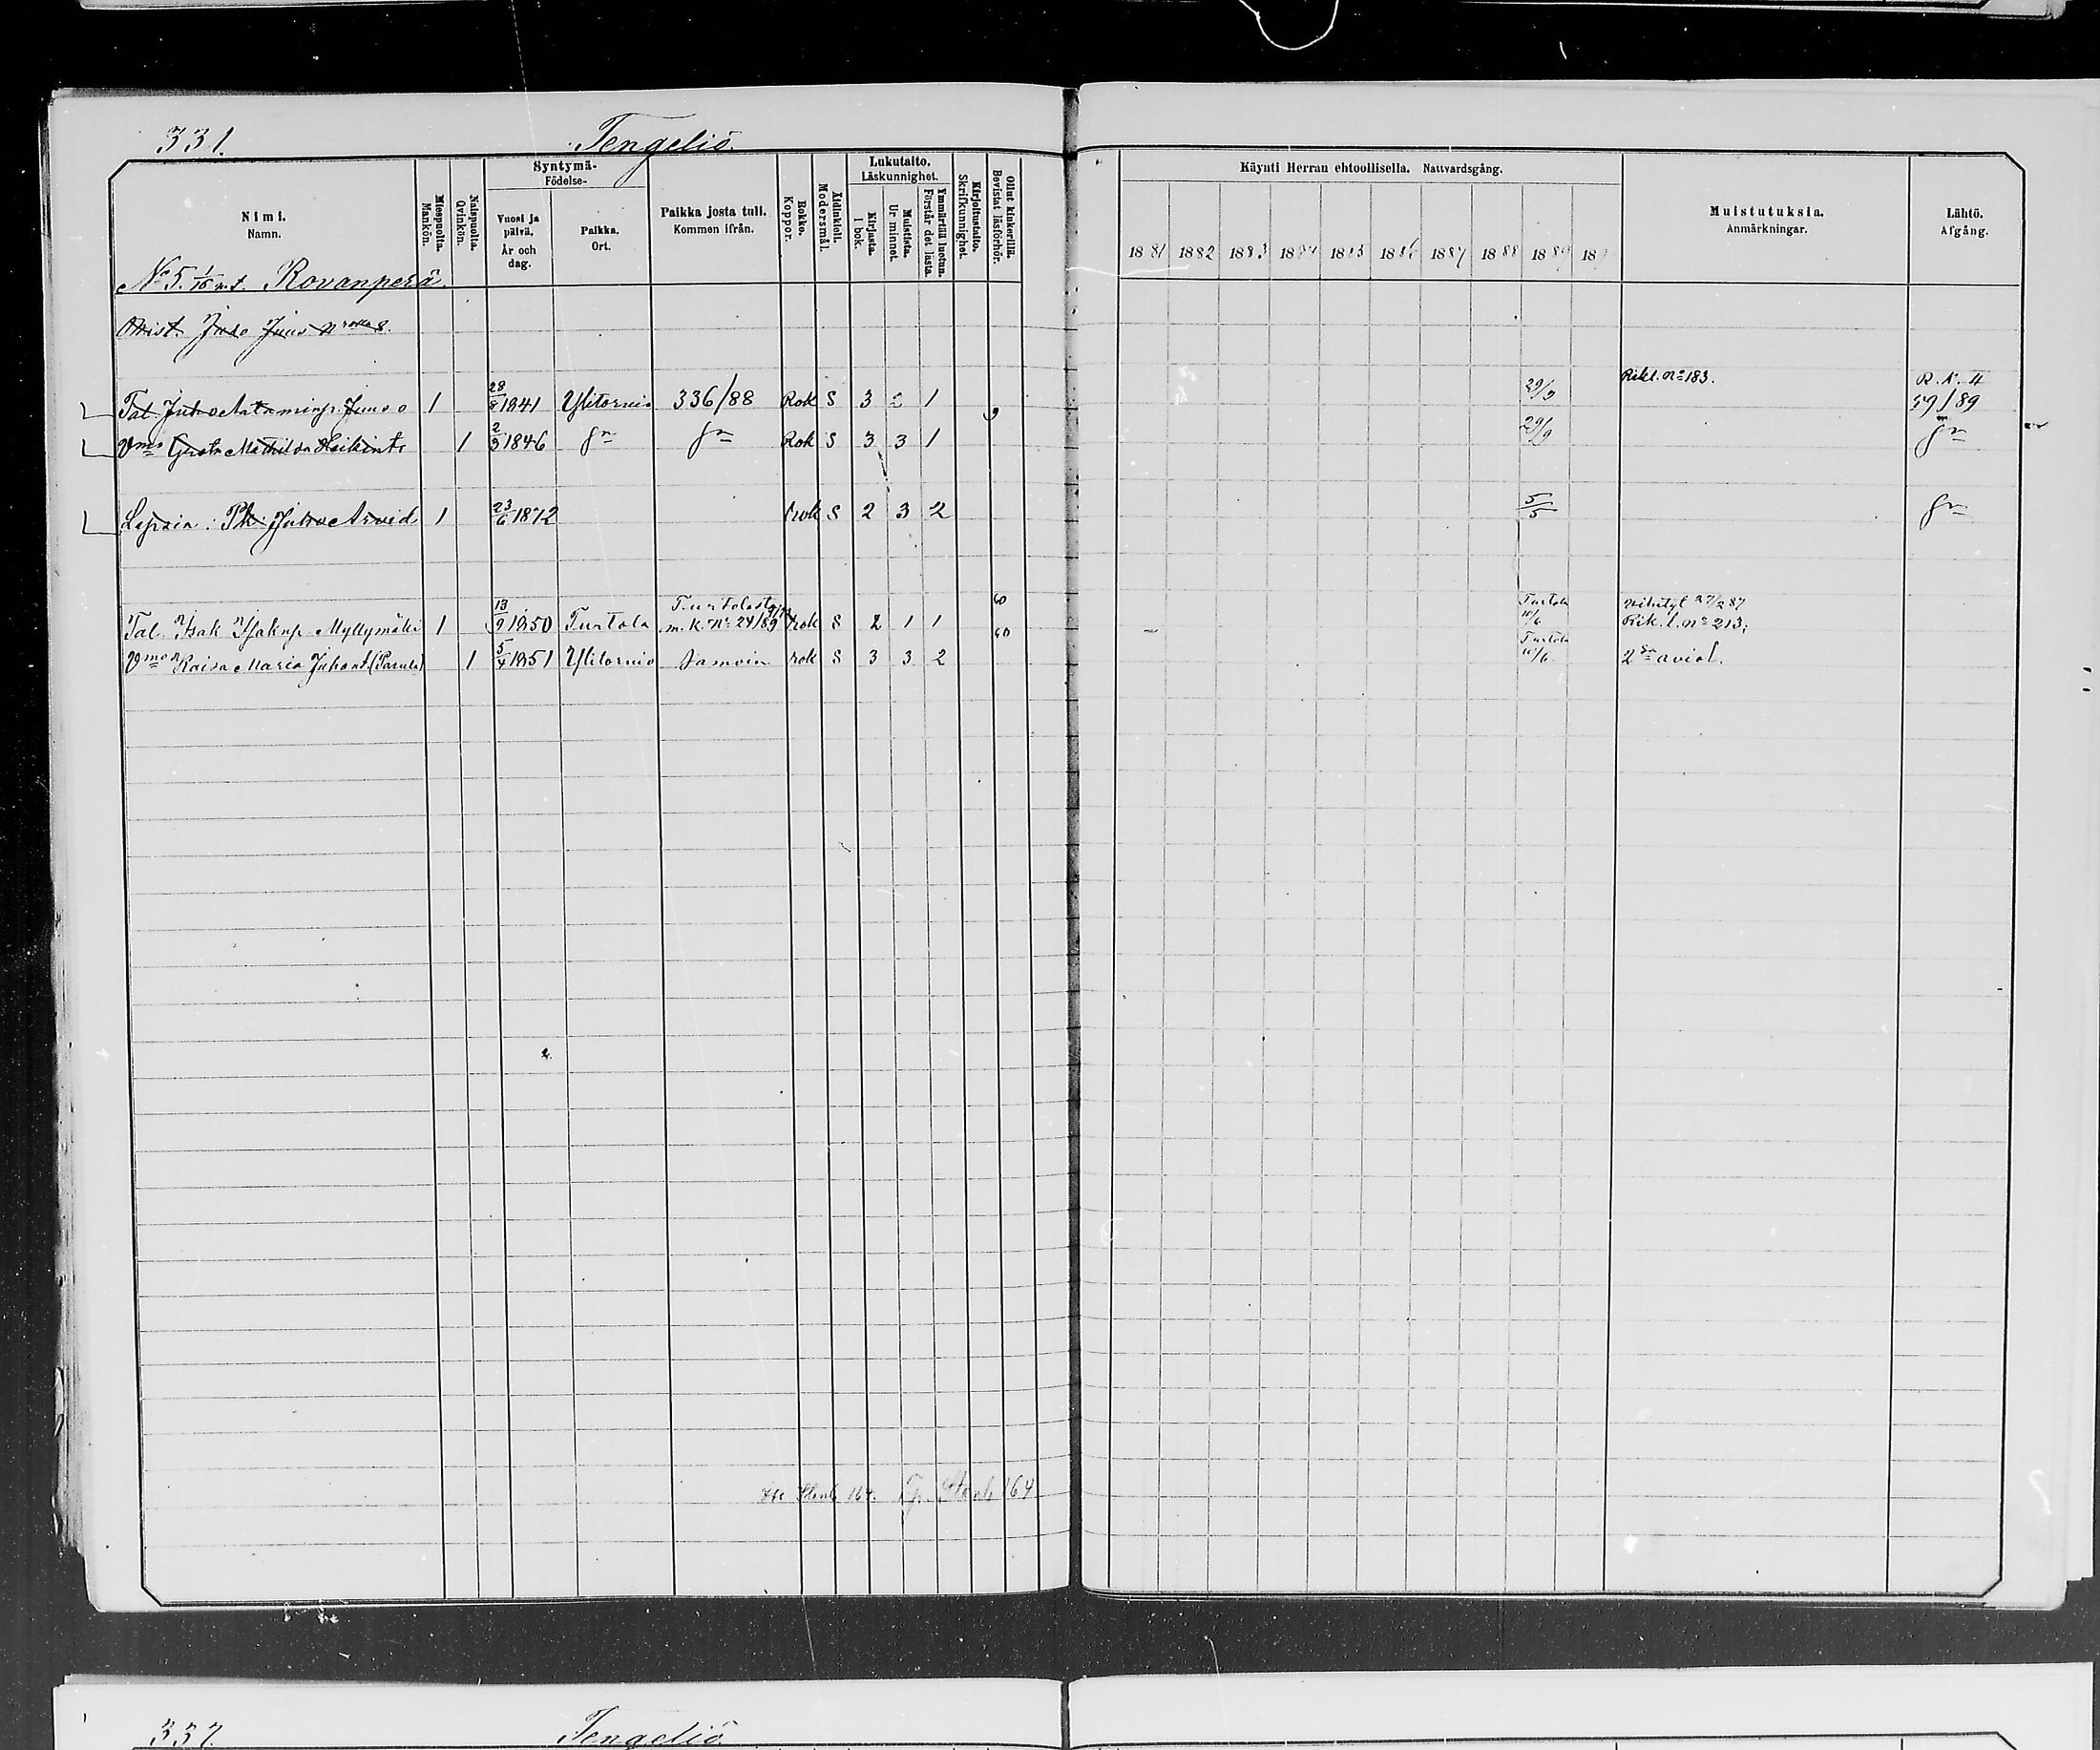 331. Tengeliö.
Syntymä-
Födelse-
Lukutaito.
Läskunnighet.
Nimi.
Namn.
Miespuolia.
Mankön.
Naispuolia.
Qvinkön.
Vuosi ja päivä.
År och dag.
Paikka.
Ort.
Paikka josta tuli.
Kommen ifrån.
Rokko.
Koppor.
Äidinkieli.
Modersmål.
Kirjasta.
I bok.
Muistista.
Ur minnet.
Ymmärtää luetun.
Förstår det lästa.
Kirjoitustaito.
Skrifkunnighet.
Ollut kinkerillä.
Bevistat läsförhör.
Käynti Herran ehtoollisella. Nattvardsgång.
1881 1882 1883 1884 1885 1886 1887 1888 1889 18
Muistutuksia.
Anmärkningar.
Lähtö.
Afgång.
No 5. 1/16 m. t. Rovanperä
Omist. Juuso
Rikl. No 183. R. K. II
Tal. Juho Aataminp. Juuso 1 28/8 1841 Ylitornio 336/88 Rok S 3 2 1 29/9 59/89
Vmo Greta Mathilda Heikint. 1 2/3 1846 Rok S 3 3 1 29/9
Lapsia: Ph. Juho Arvid 1 23/6 1872 rok S 2 3 2 5/5
Turtolasta 60 Turtola 27/2 87
Tal. Isak Isakinp. Myllymäki 1 13/9 1850 Turtola m. k. No 24/89 rok S 2 1 1 Rik. l. No 213;
60 Turtola
Vmo Kaisa Maria Juhont. 1 5/4 1851 Ylitornio samoin rok S 3 3 2 2 aviol.
164. 164
337. Tengeliö